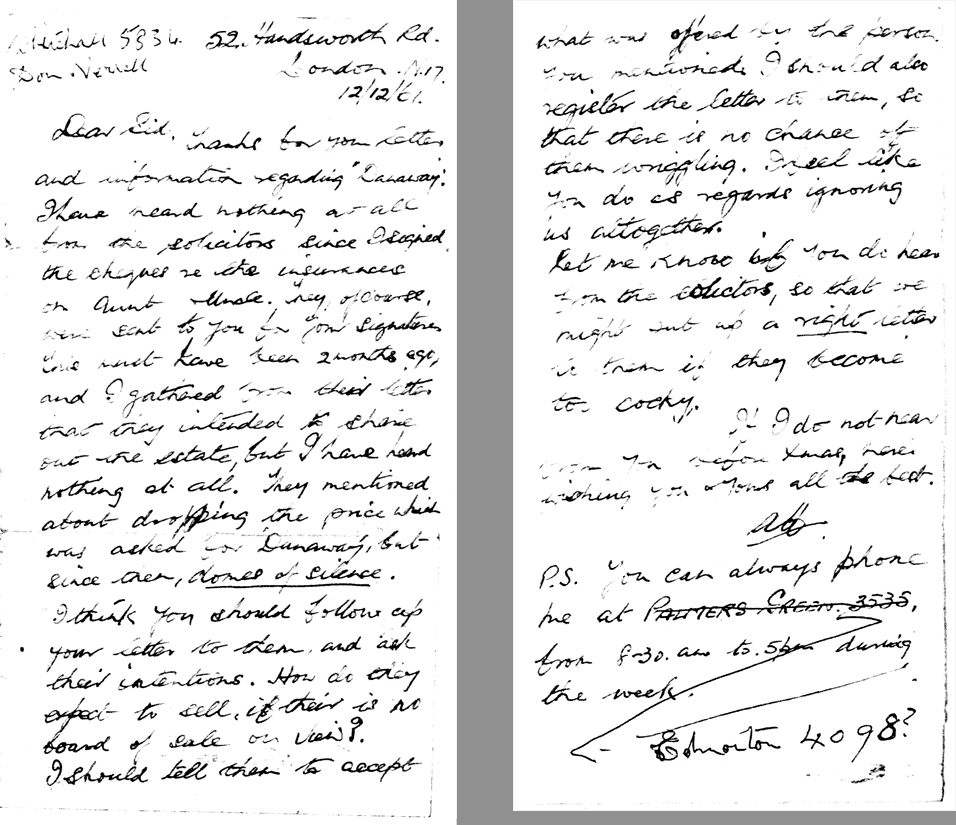 Mitchell 5334. 52, Handsworth Rd.
Don Verrell London. N.17.
12/12/61.
Dear Sid,
Thanks for your letter
and information regarding "Danaway".
I have heard nothing at all
from the solicitors since I signed
the cheques re the insurances
on Aunt & Uncle. They, of course,
were sent to you for your signature
This must have been 2 months ago,
and I gathered from their letter
that they intended to share
out the estate, but I have heard
nothing at all. They mentioned
about dropping the price which
was asked for Danaway, but
since then, domes of silence.
I think you should follow up
your letter to them, and ask
their intentions. How do they
expect to sell, if their is no
board of sale on view?.
I should tell them to accept
what was offered by the person
you mentioned. I should also
register the letter to them, so
that there is no chance of
them wriggling. I feel like
you do as regards ignoring
us altogether.
Let me know if you do hear
from the solictors, so that we
might put up a right letter
to them if they become
too cocky.
If I do not hear
from you before Xmas, here's
wishing you & yours all the best.
Alb
P.S. You can always phone
me at PALMERS GREEN. 3535,
from 8-30. am to. 5pm during
the week.
Edmonton 4098?